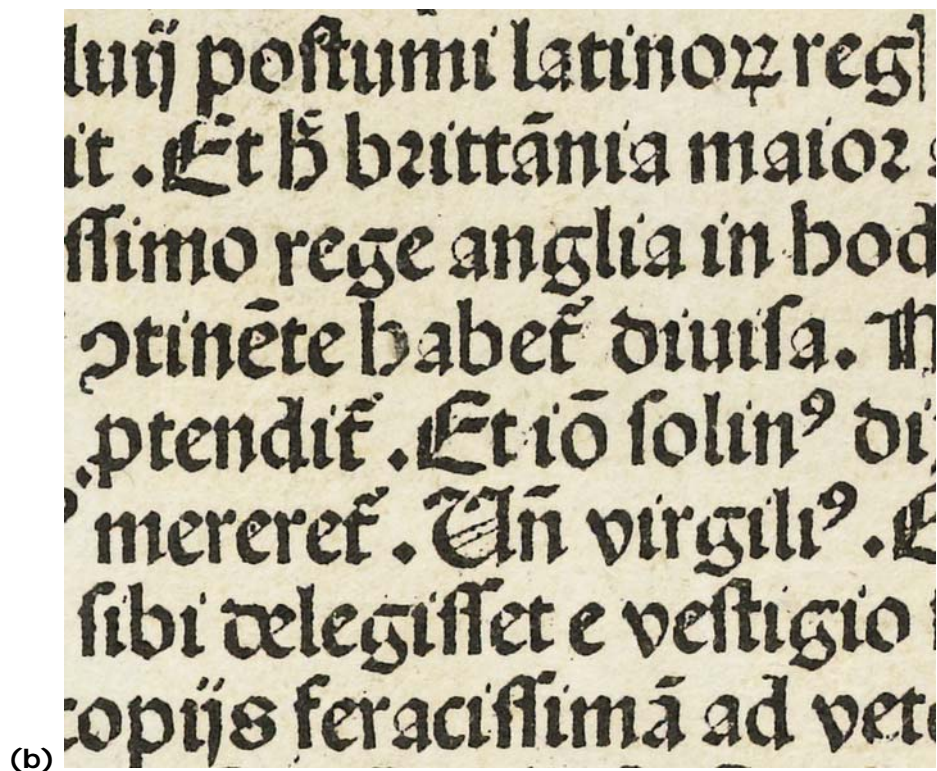 luij poſtumi latinoꝝ reg
it . Et h̄ brittānia maior
ſſimo rege anglia in hod
ꝯtinēte habet᷑ diuiſa .
ꝓtendit᷑ . Et iō ſolinꝰ di
mereret᷑ . Un̄ virgiliꝰ . E
ſibi delegiſſet e veſtigio
copijs feraciſſimā ad vete
(b)